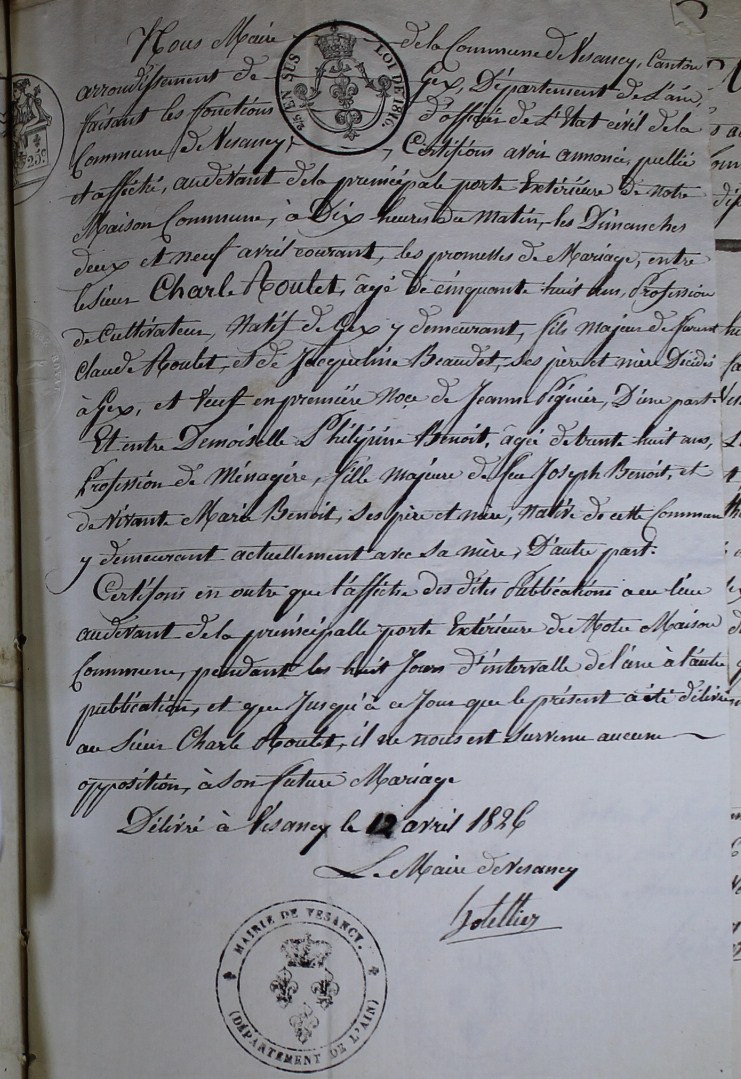 Nous Maire de la Commune de Vesancy, Canton
arrondissement de Gex, Département de L'ain,
faisant les fonctions d'officier de L'Etat civil de la
Commune de Vesancy, Certifions avoir annoncé, publié
et affiché, audevant de la principale porte Extérieure de notre
Maison Commune, à Dix heures du Matin, les Dimanches
deux et neuf avril courant, les promesses de Mariage, entre
le sieur Charle Roulet, âgé de cinquante huit ans, Profession
de Cultivateur, Natif de Gex y demeurant, fils Majeur de furent
Claude Roulet, et de Jacqueline Beaudet, ses père et mère Décédés
à Gex, et Veuf en première Noce de Jeanne Péguier, D'une part.
Et entre Demoiselle Philipine Benoit, âgée de trente huit ans,
Profession de Ménagère, fille Majeure de feu Joseph Benoit, et
de Vivante Marie Benoit, ses père et mère, Native de cette Commune
y demeurant actuellement avec sa mère, D'autre part.
Certifions en outre que l'affiche des dites Publications a eu lieu
audevant de la principalle porte Extérieure de Notre Maison
Commune, pendant les huit Jours d'intervalle de l'une à l'autre
publication, et que Jusqu'à ce Jour que le présent a été délivré
au Sieur Charle Roulet, il ne nous est Survenu aucune
opposition, à Son future Mariage
Délivré à Vésancy le 12 avril 1826
Le Maire de Vesancy
hotellier
EN SUS LOI DE 1816.
25c.
MAIRIE DE VESANCY.
(DÉPARTEMENT DE L'AIN)